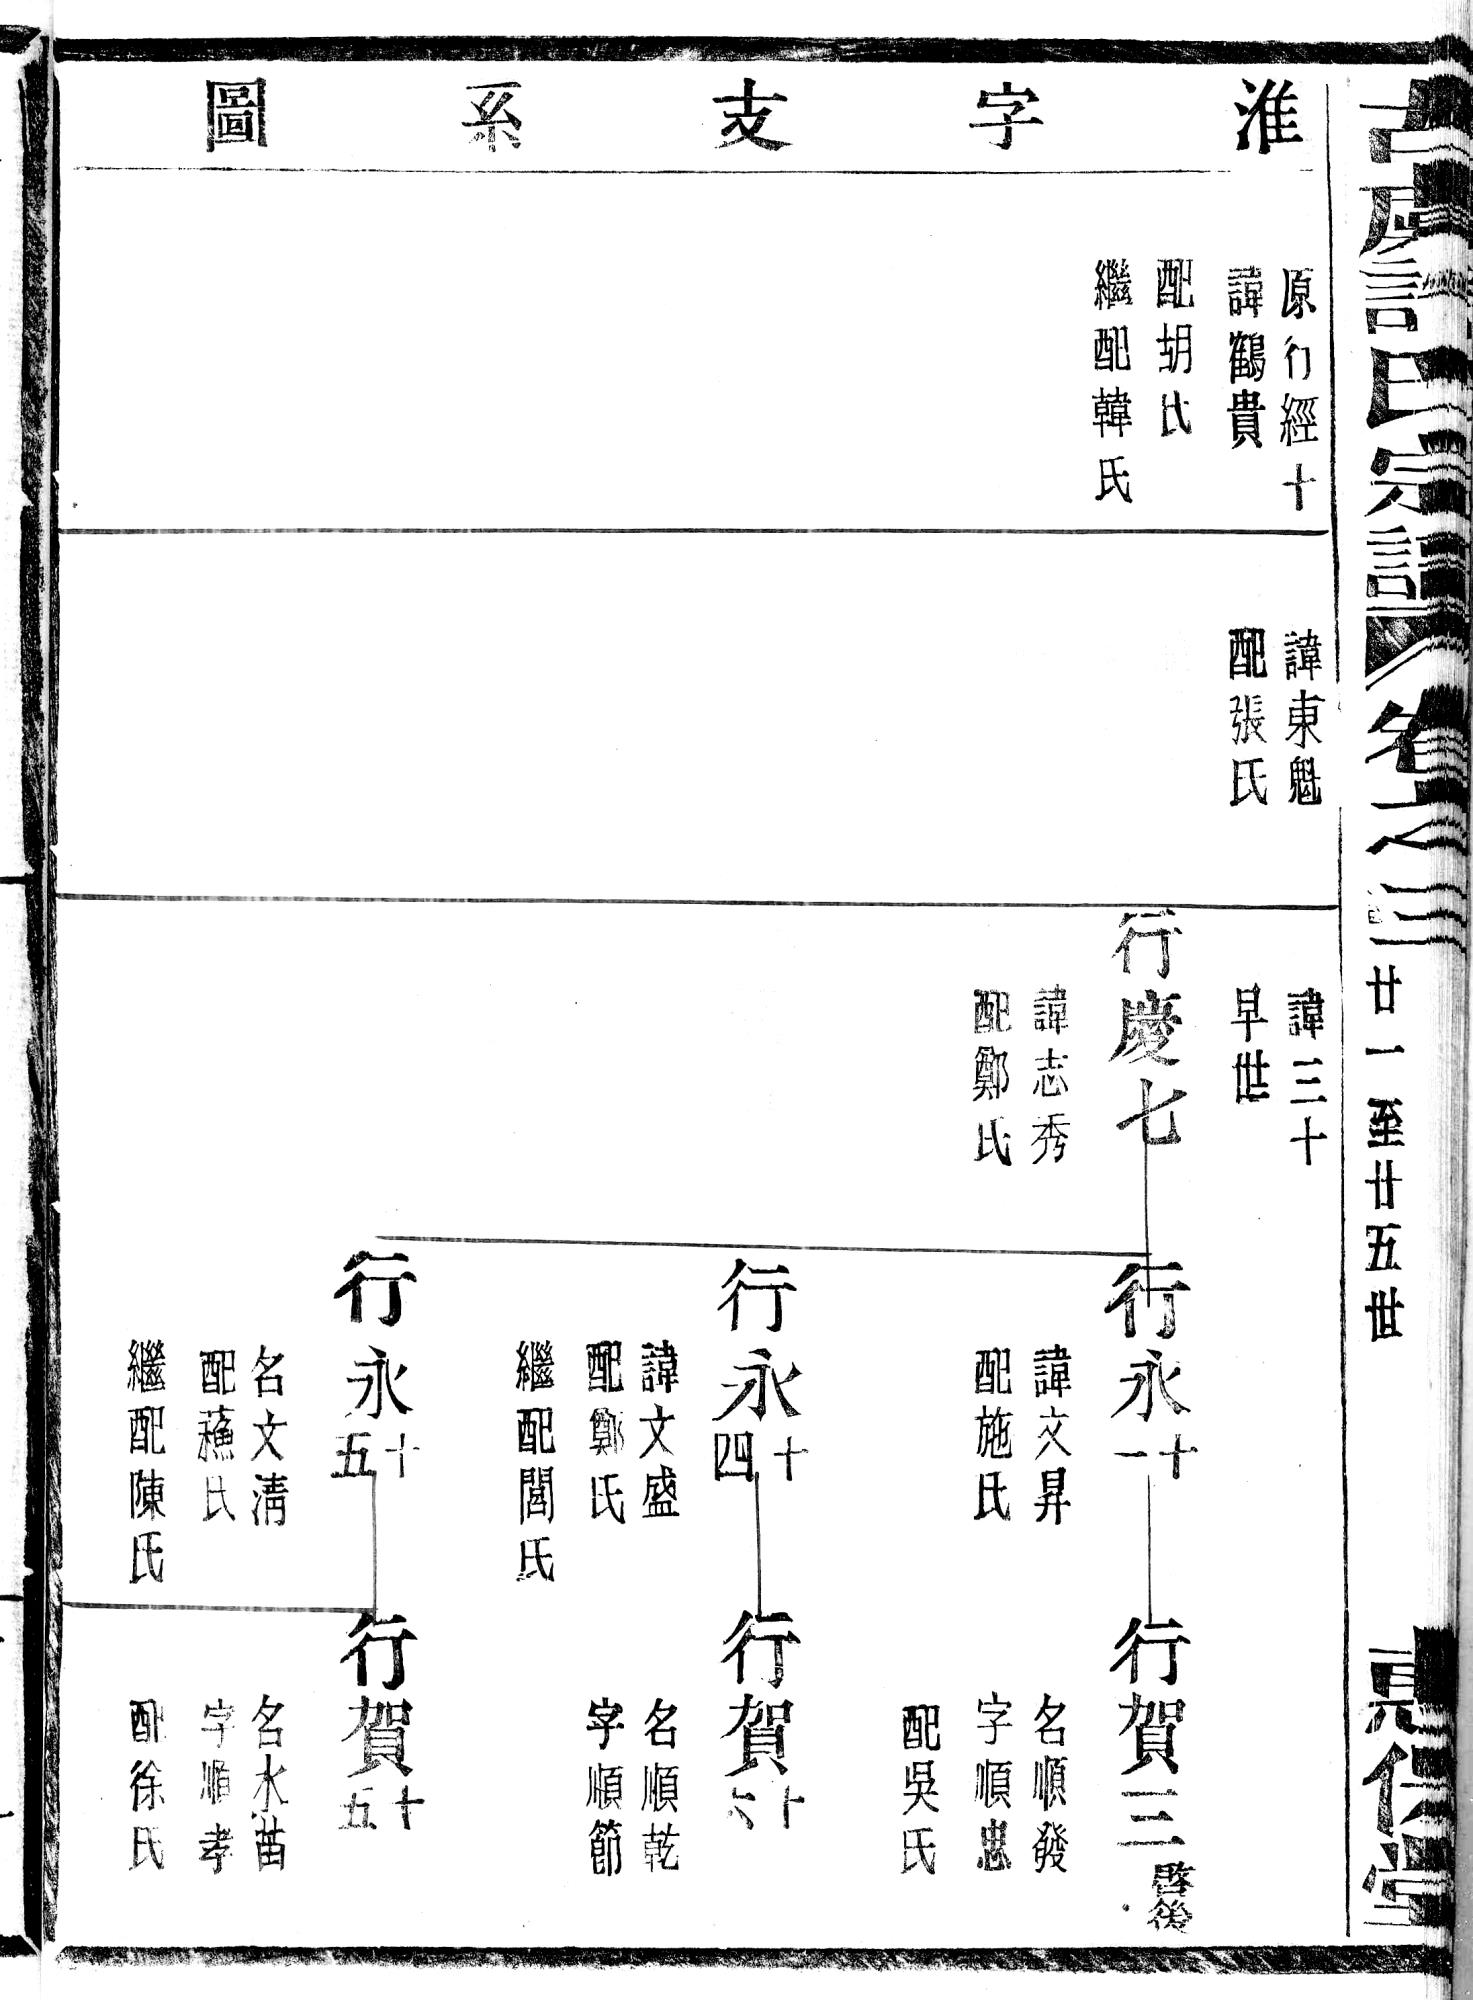 淮字支系圖
原行經十
諱鶴貴
配胡氏
繼配韓氏
諱東魁
配張氏
諱三十
早世
行慶七
諱志秀
配鄭氏
行永十一
諱文昇
配施氏
行永十四
諱文盛
配鄭氏
繼配閻氏
行永十五
名文清
配蘓氏
繼配陳氏
行賀三
啓後
名順發
字順忠
配吳氏
行賀十六
名順乾
字順節
行賀十五
名永苗
字順孝
配徐氏
氏宗譜
卷之三
廿一至廿五世
堂